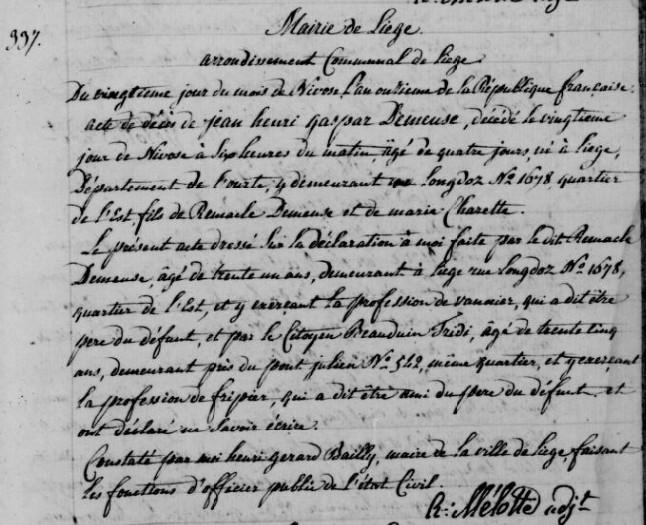 337.
Mairie de Liege.
arrondissement Communal de Liege
Du vingtieme jour du mois de Nivose l'an onzieme de la République française.
acte de décès de jean henri gaspar Demeuse, décédé le vingtieme
jour de Nivose à six heures du matin, âgé de quatre jours, né à Liege,
Département de l'ourte, y demeurant rue Longdoz N.º 1678, quartier
de l'Est, fils de Remacle Demeuse et de maria Charette.
Le présent acte dressé sur la déclaration à moi faite par le dit Remacle
Demeuse, âgé de trente un ans, demeurant à Liege rue Longdoz N.º 1678,
quartier de l'Est, et y exerçant la profession de vannier, qui a dit être
pere du défunt, et par le Citoyen Beauduin Tridi, âgé de trente cinq
ans, demeurant près du pont julien N.º 542, même quartier, et y exerçant
la profession de fripier, qui a dit être ami du pere du défunt, et
ont déclaré ne savoir écrire.
Constaté par moi henri gerard Bailly, maire de la ville de Liege, faisant
les fonctions d'officier public de l'état Civil.
Mélotte adj.t